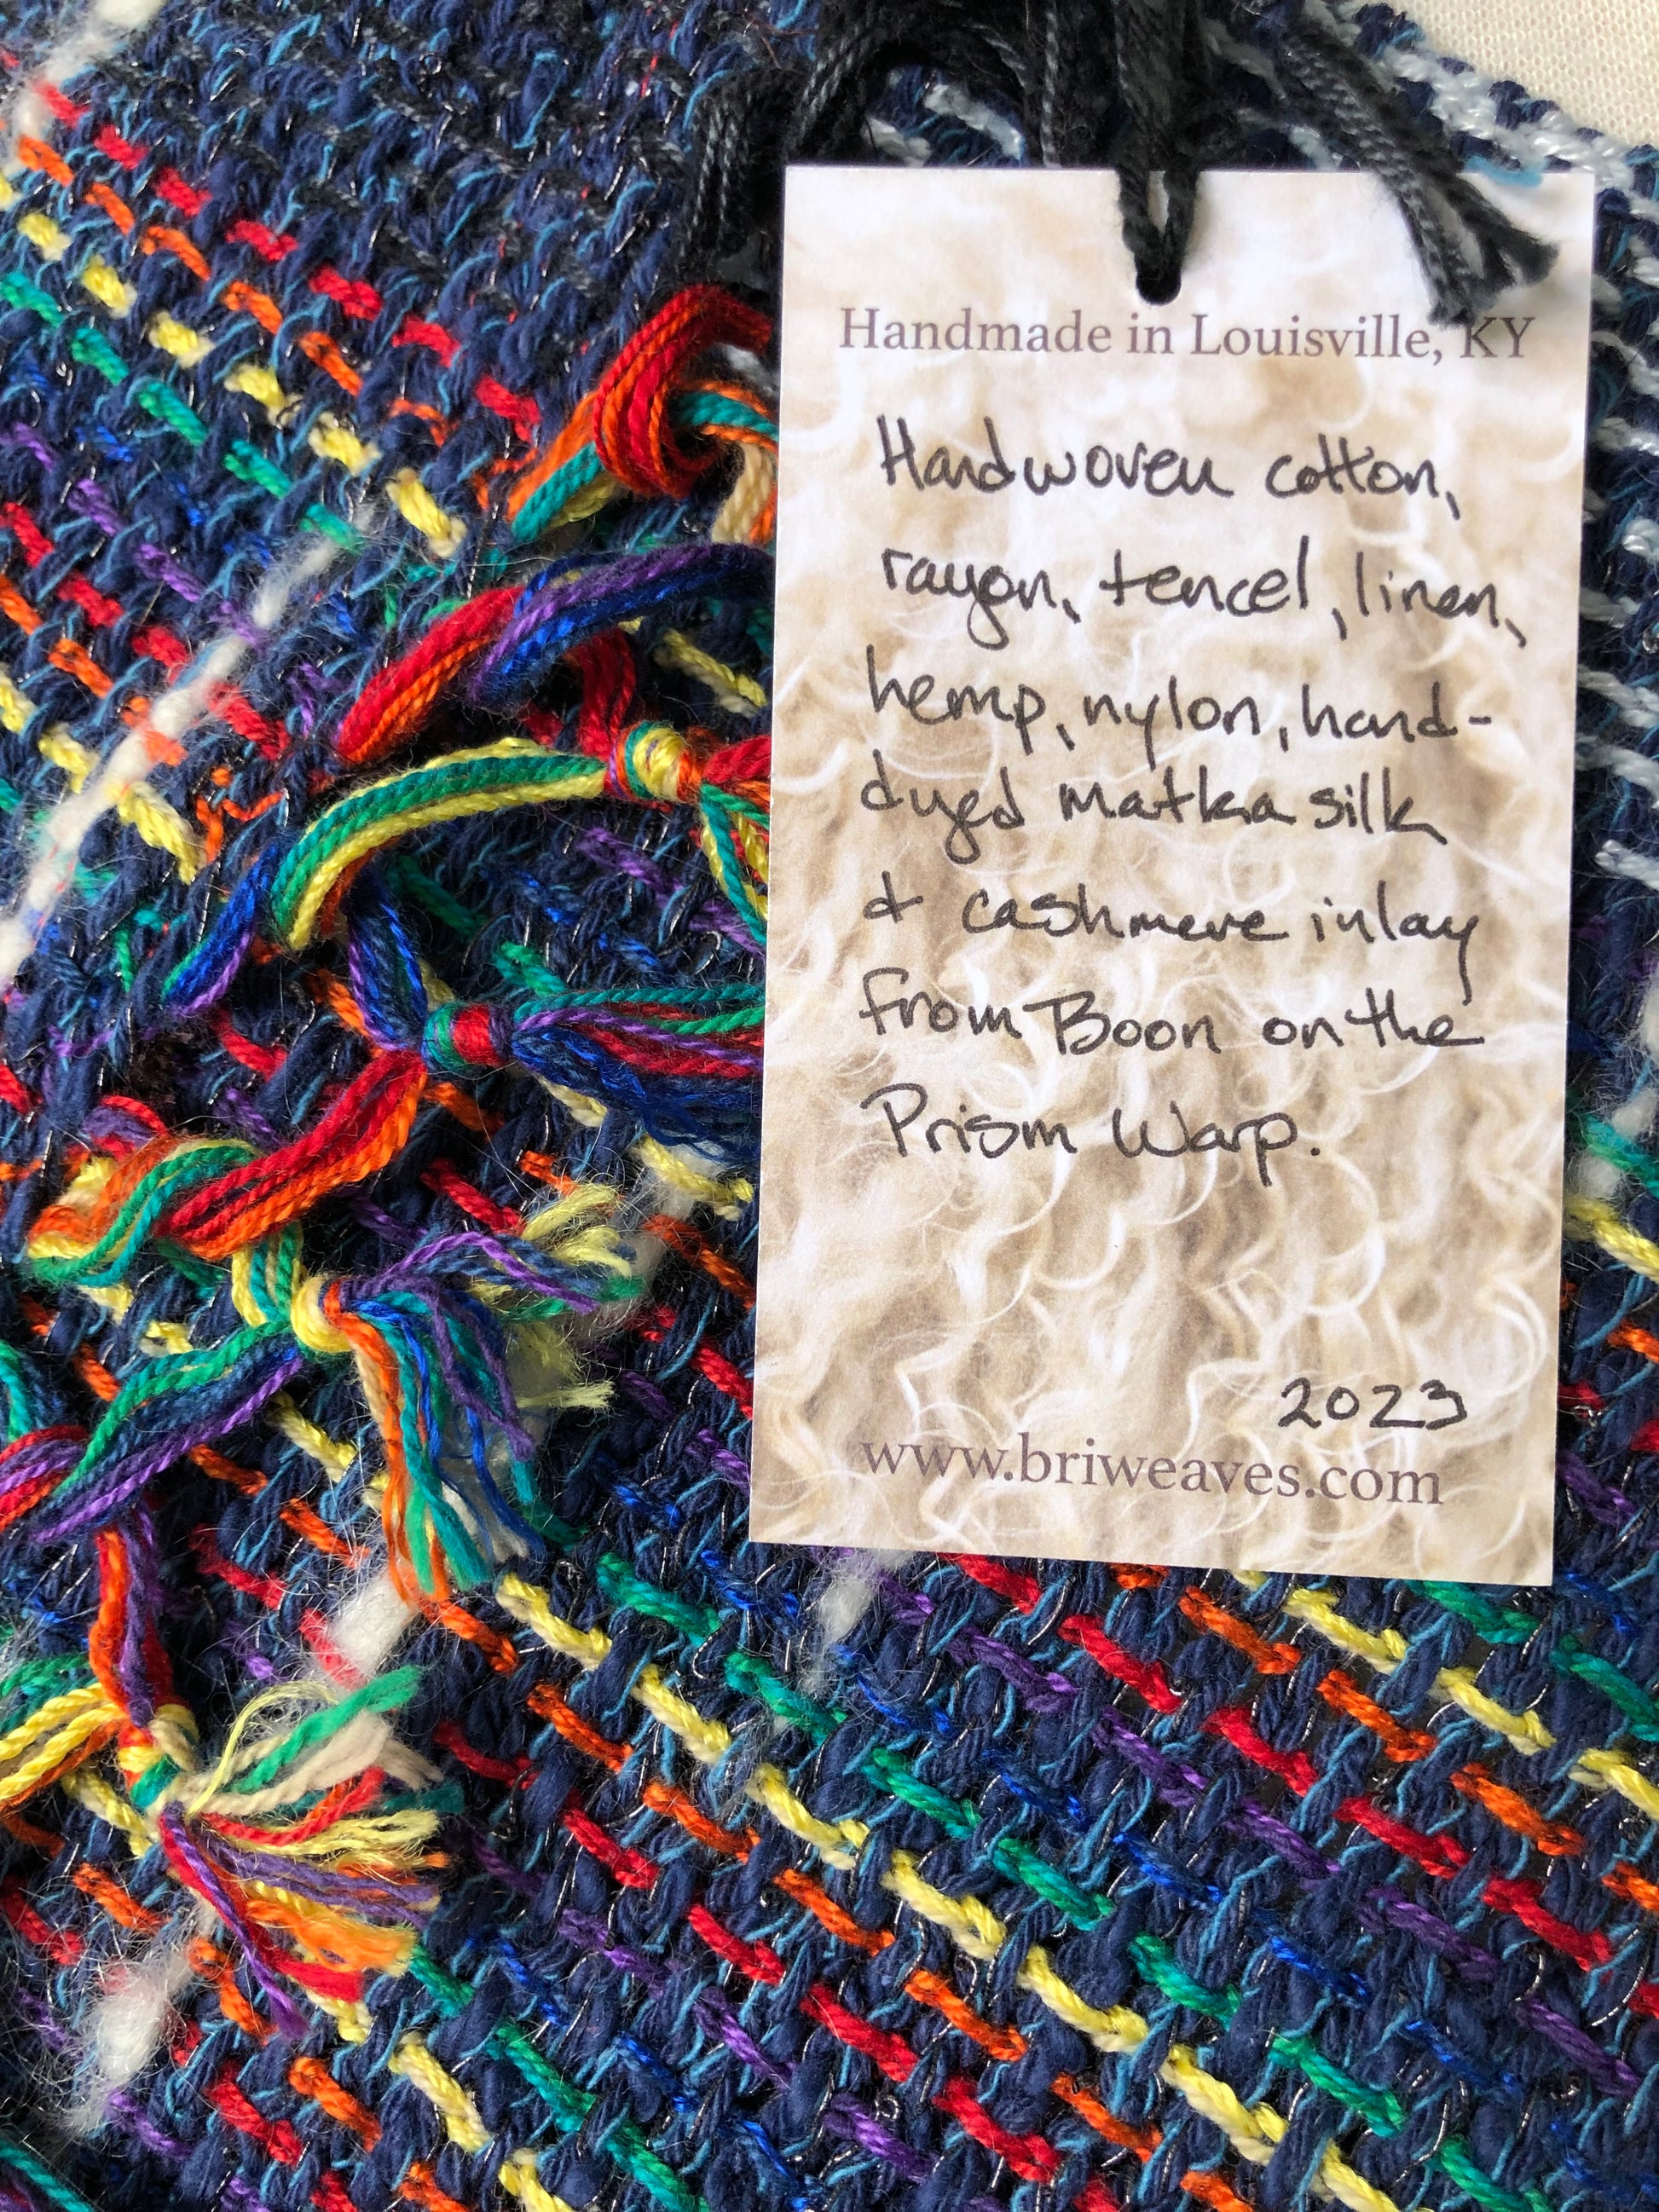 Handmade in Louisville, KY
Handwoven cotton,
rayon, tencel, linen,
hemp, nylon, hand-
dyed matka silk
& cashmere inlay
from Boon on the
Prism Warp.
2023
www.briweaves.com